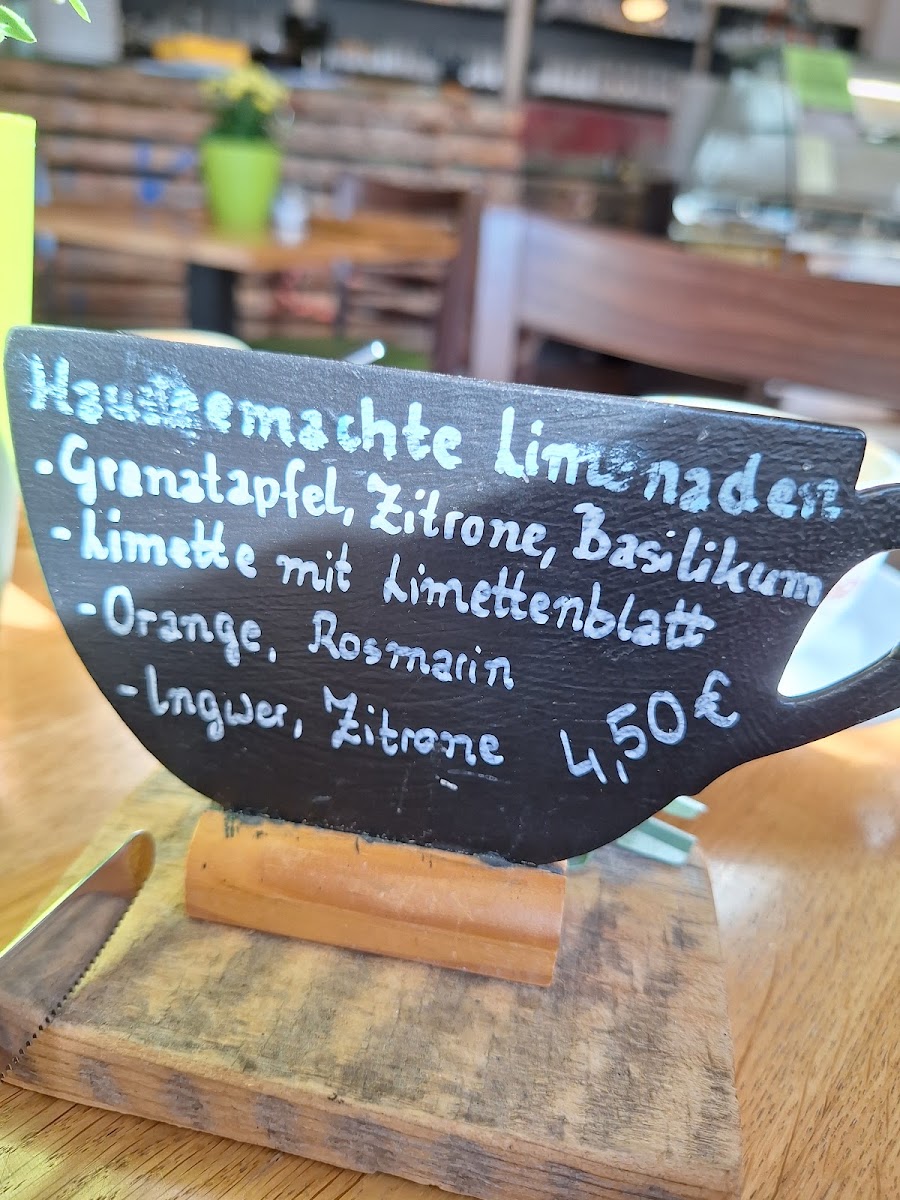 Hausgemachte Limonaden
-Granatapfel, Zitrone, Basilikum
-Limette mit Limettenblatt
-Orange, Rosmarin
-Ingwer, Zitrone 4,50€